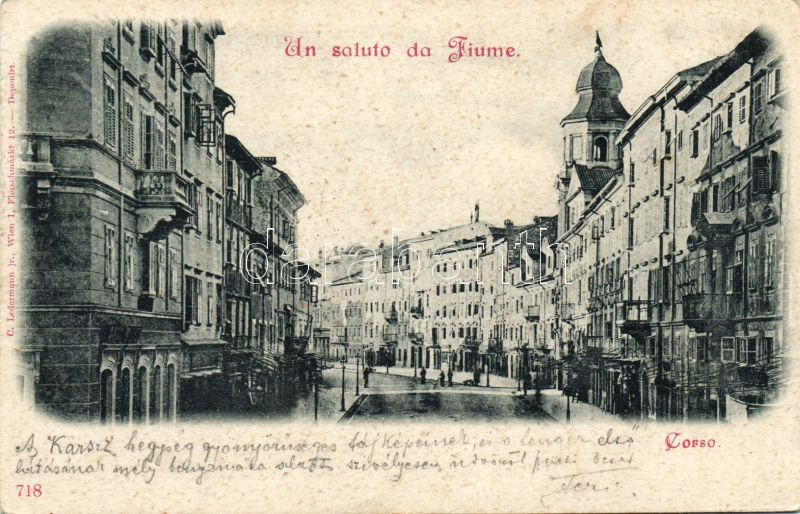 Un saluto da Fiume.
C. Ledermann jr., Wien I, Fleischmarkt 12. — Deponirt.
darabanth.com
Corso.
A Karszt hegség gyönyörűséges tájképeinek, és a tenger első
hatásának mély benyomása alatt szívélyesen üdvözöl
Feri
718